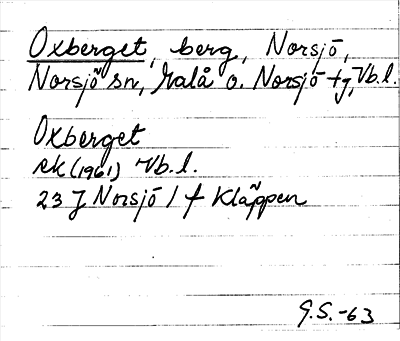 Oxberget, berg, Norsjö,
Norsjö sn, Malå o. Norsjö tg, Vb.l.
Oxberget
ek (1961) Vb.l.
23 J Norsjö 1 f Kläppen
G.S.-63